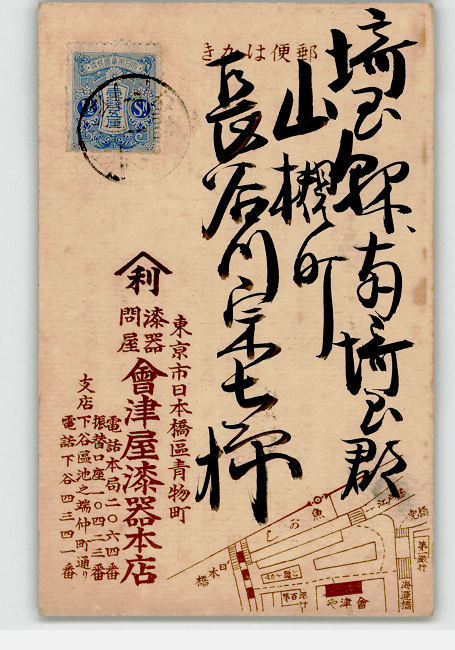 郵便はかき
壹錢五厘
埼玉縣南埼玉郡
岩槻町
長谷川宗七様
利
漆器
問屋
東京市日本橋區青物町
會津屋漆器本店
電話本局二〇六四番
振替口座一〇四二三番
支店下谷區池之端仲町通り
電話下谷四三四一番
魚がし
江戸橋
日本橋
第一銀行
海運橋
會津や
第百銀行